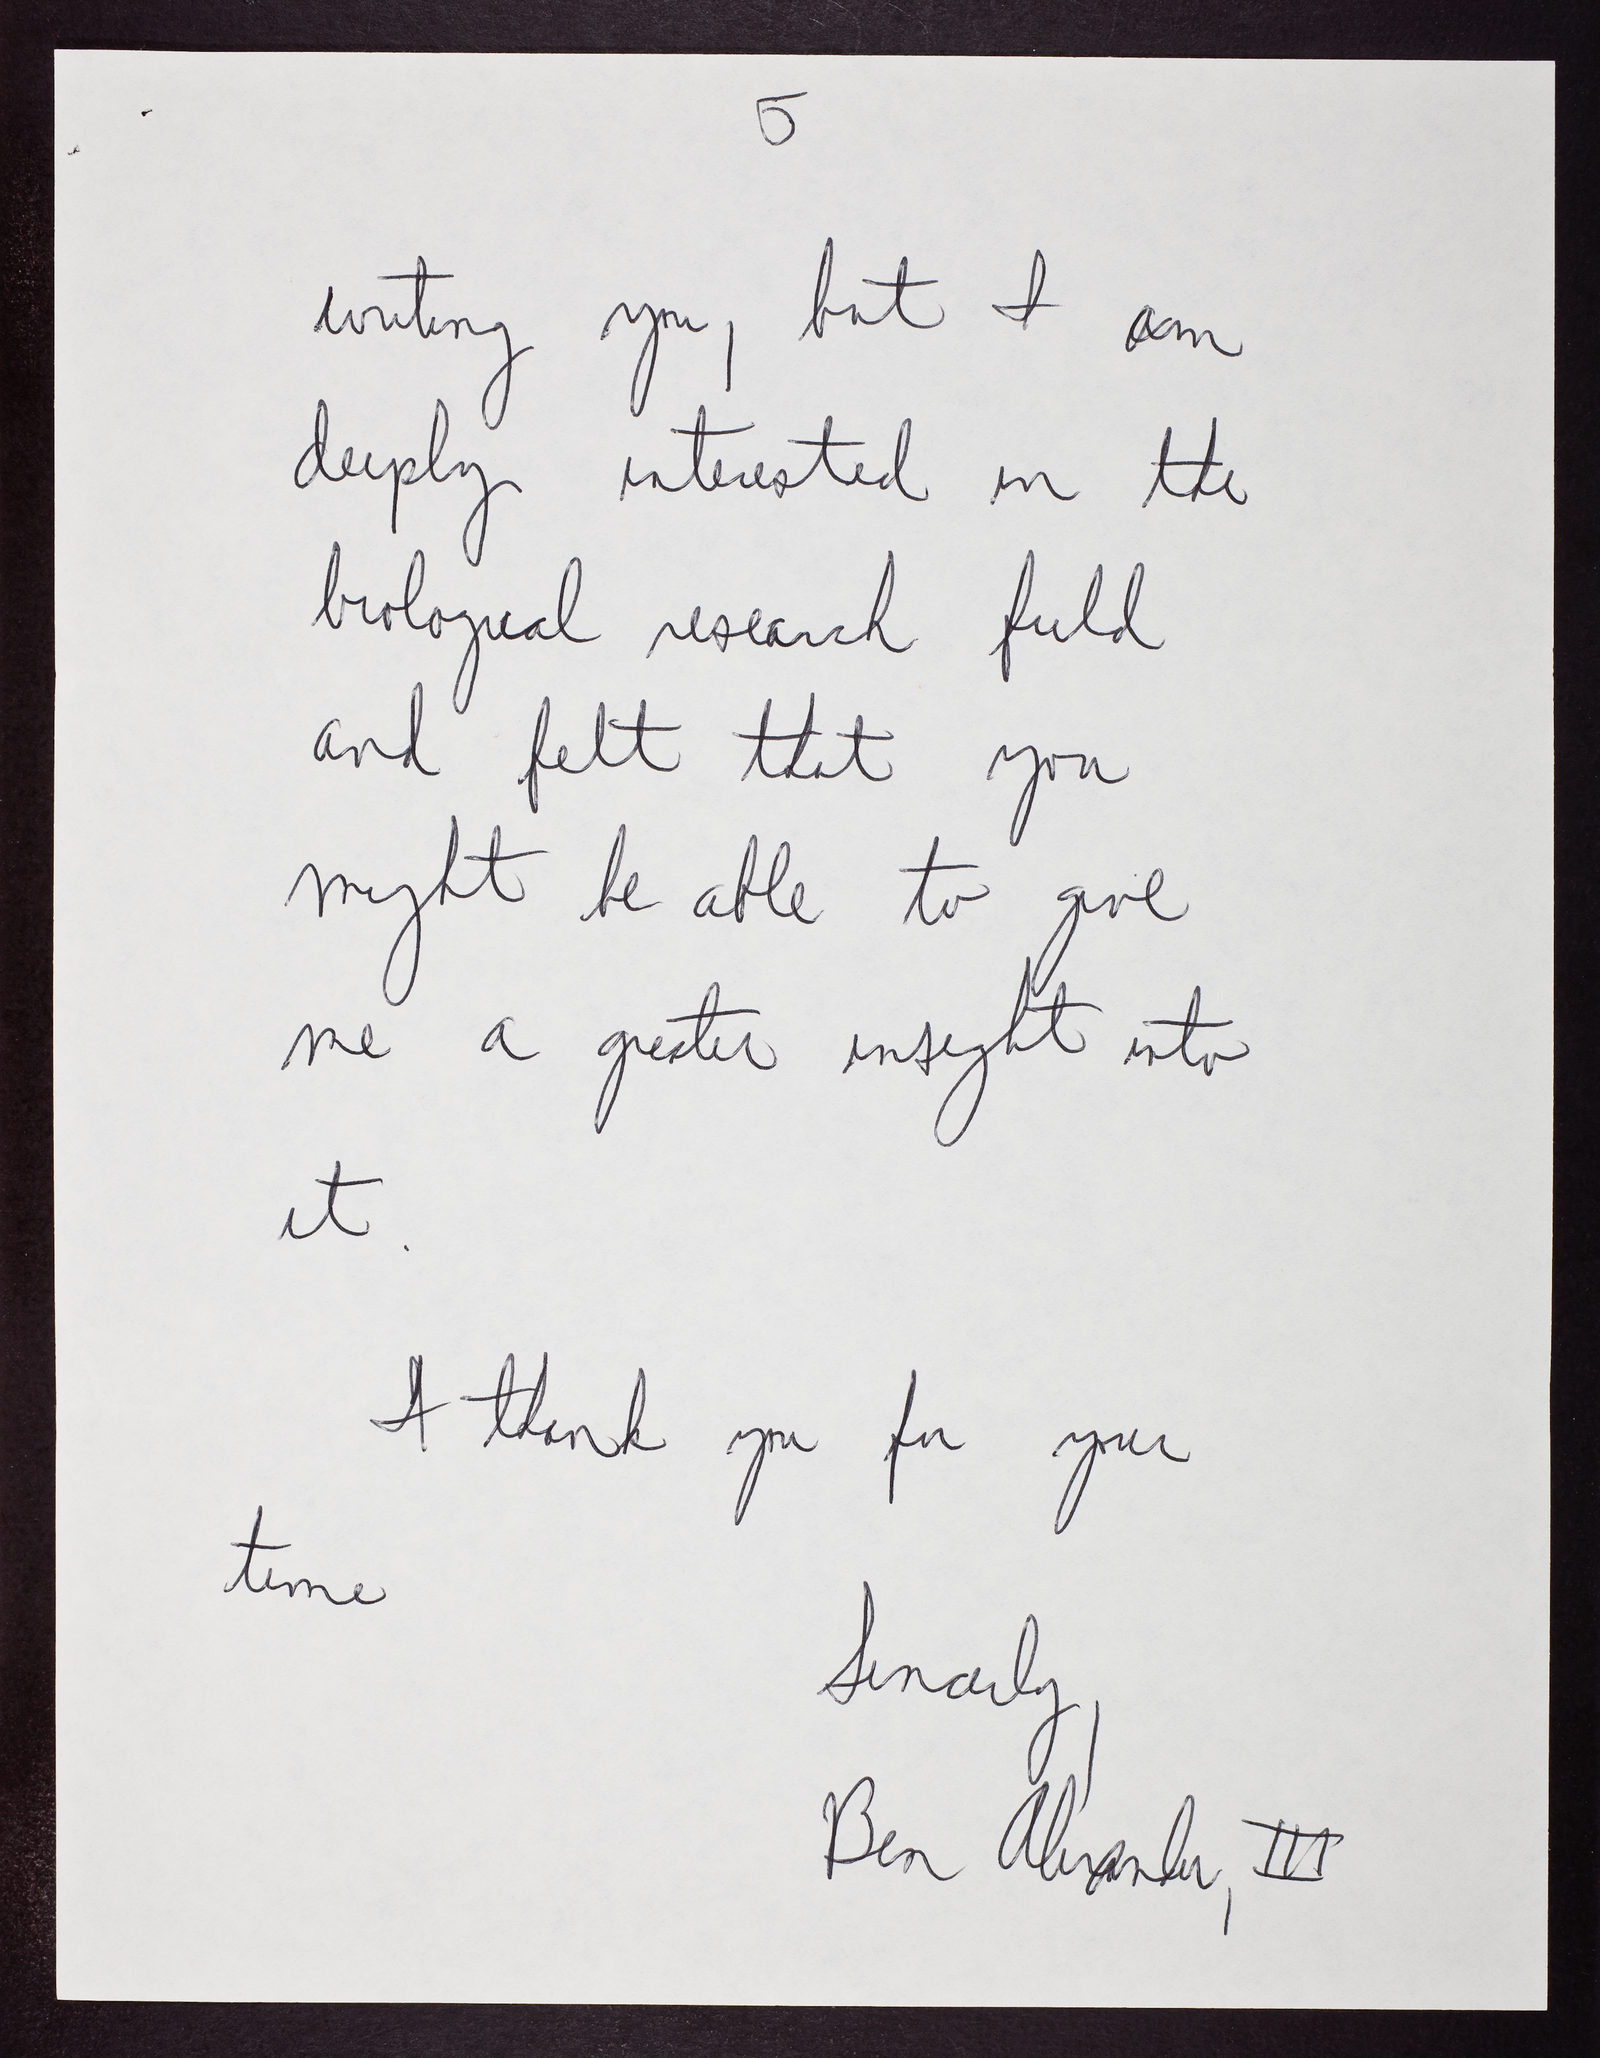 5
writing you, but I am
deeply interested in the
biological research field
and felt that you
might be able to give
me a greater insight into
it.
I thank you for your
time
Sincerely,
Ben Alexander, III